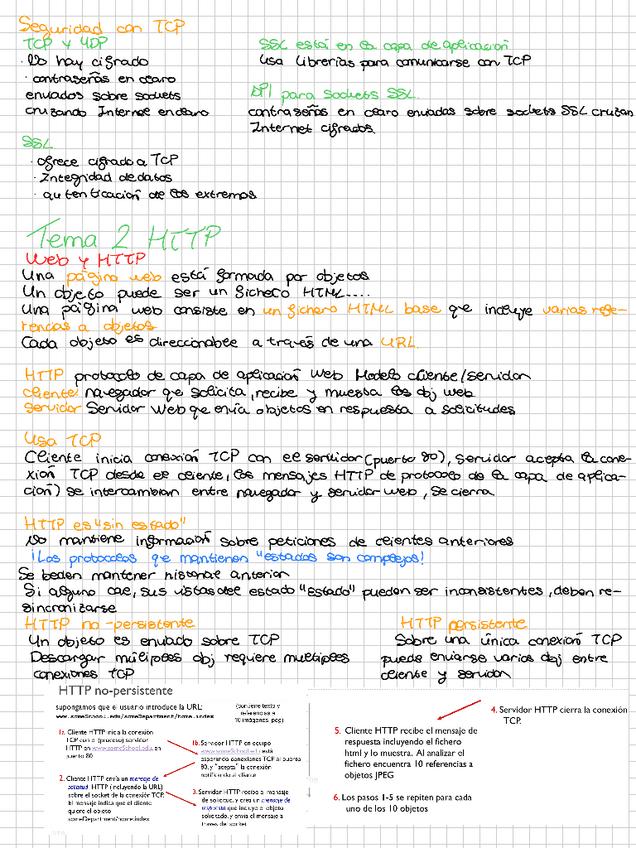 Seguridad con TCP
TCP y UDP
· No hay cifrado
· contraseñas en claro
enviados sobre sockets
cruzando Internet en claro
SSL está en la capa de aplicación
usa librerias para comunicarse con TCP
API para sockets SSL
contraseñas en claro enviadas sobre sockets SSL cruzan
Internet cifrados.
SSL
· ofrece cifrado a TCP
· Integridad de datos
· autenticación de los extremos
Tema 2 HTTP
Web y HTTP
Una página web está formada por objetos
Un objeto puede ser un fichero HTML....
Una página web consiste en un fichero HTML base que incluye varias refe-
rencias a objetos
Cada objeto es direccionable a través de una URL
HTTP protocolo de capa de aplicación Web Modelo cliente/servidor
cliente navegador que solicita, recibe y muestra los obj web
Servidor Servidor Web que envía objetos en respuesta a solicitudes
Usa TCP
Cliente inicia conexión TCP con el servidor (puerto 80), servidor acepta la cone-
xión TCP desde el cliente, los mensajes HTTP de protocolo de la capa de aplica-
ción) se intercambian entre navegador y servidor web, se cierra
HTTP es "sin estado"
No mantiene información sobre peticiones de clientes anteriores
¡Los protocolos que mantienen "estados son complejos!
Se deben mantener historial anterior
Si alguno cae, sus vistas del estado "Estado" pueden ser inconsistentes, deben re-
sincronizarse
HTTP no-persistente
Un objeto es enviado sobre TCP
Descargar múltiples obj requiere multiples
conexiones TCP
HTTP persistente
Sobre una única conexión TCP
puede enviarse varios obj entre
cliente y servidor
HTTP no-persistente
supongamos que el usuario introduce la URL:
www.someSchool.edu/someDepartment/home.index
(contiene texto y
referencias a
10 imágenes jpeg)
1a. Cliente HTTP inicia la conexión
TCP con el (proceso) servidor
HTTP en www.someSchool.edu en
puerto 80
1b. Servidor HTTP en equipo
www.someSchool.edu está
esperando conexiones TCP al puerto
80, y "acepta" la conexión
notificando al cliente
2. Cliente HTTP envía un mensaje de
solicitud HTTP (incluyendo la URL)
sobre el socket de la conexión TCP.
El mensaje indica que el cliente
quiere el objeto
someDepartment/home.index
3. Servidor HTTP recibe el mensaje
de solicitud, crea un mensaje de
respuesta que incluye el objeto
solicitado, y envía el mensaje a
través del socket
4. Servidor HTTP cierra la conexión
TCP.
5. Cliente HTTP recibe el mensaje de
respuesta incluyendo el fichero
html y lo muestra. Al analizar el
fichero encuentra 10 referencias a
objetos JPEG
6. Los pasos 1-5 se repiten para cada
uno de los 10 objetos